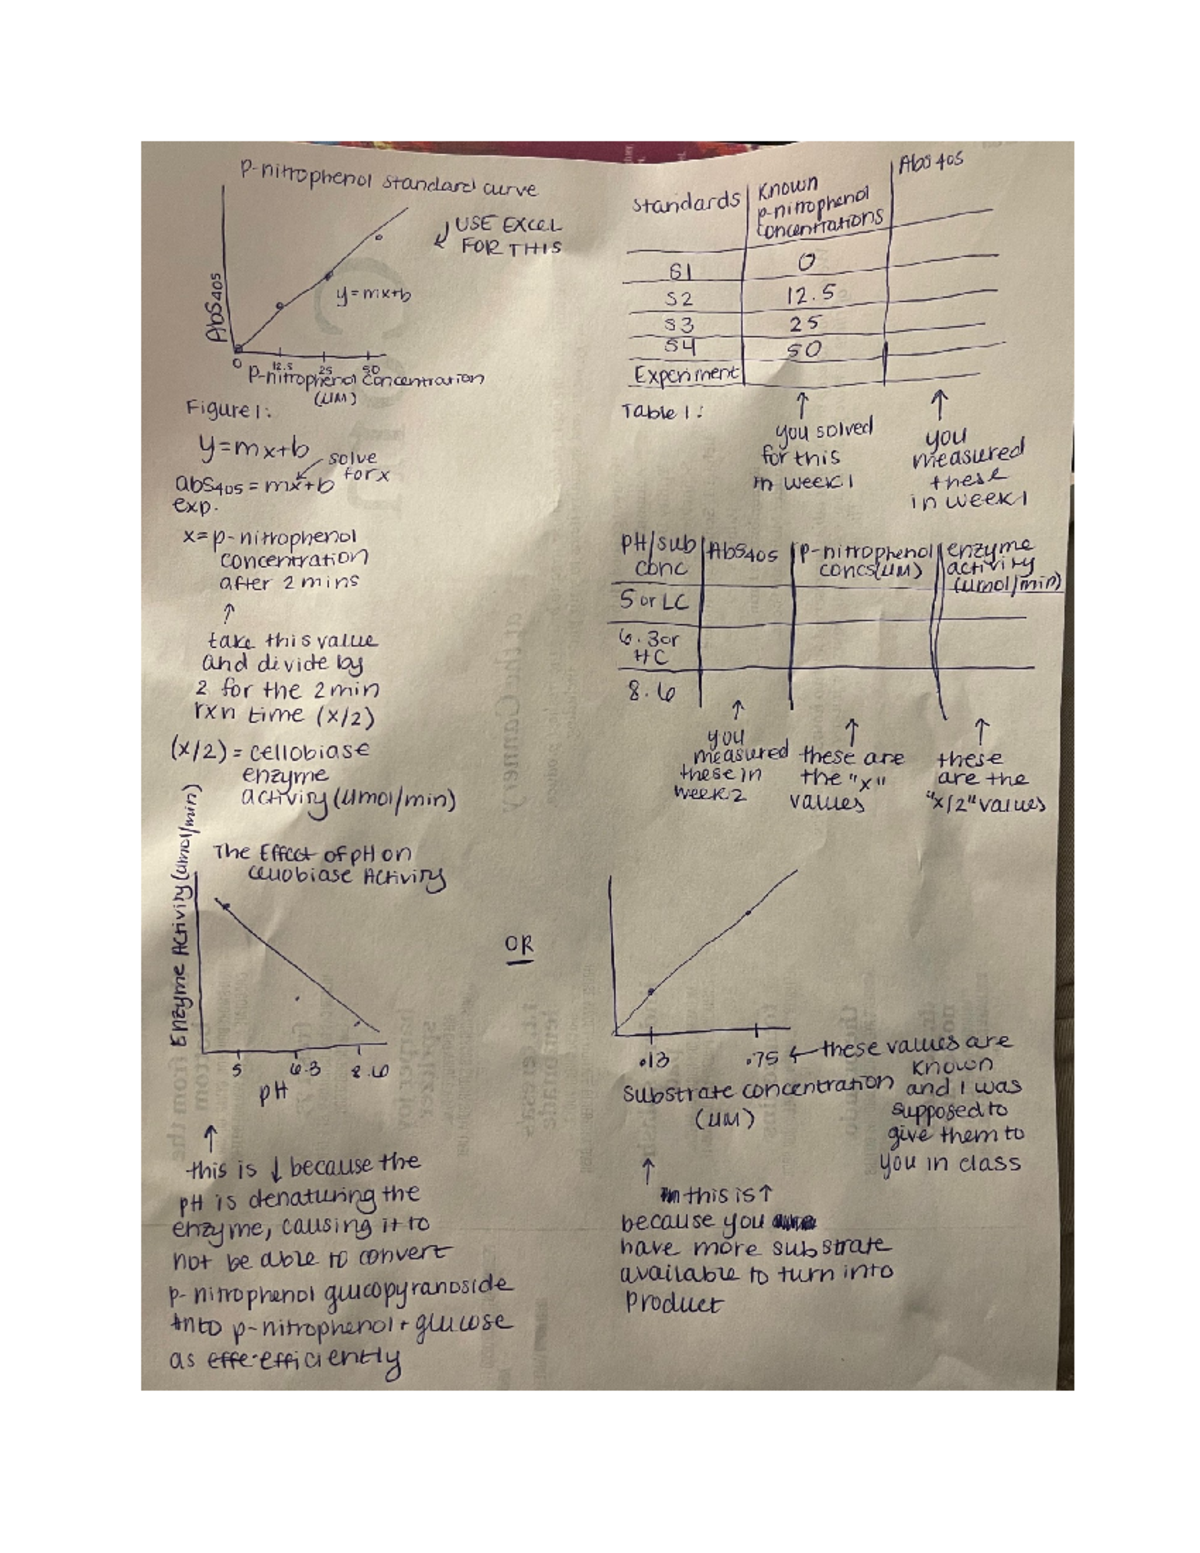 P-nitrophenol standard curve
USE EXCEL
FOR THIS
Abs405
y=mx+b
0 12.5 25 50
P-nitrophenol concentration
(UM)
Figure 1:
y=mx+b
solve
for x
abs405 = mx+b
exp.
x= p-nitrophenol
concentration
after 2 mins
↑
take this value
and divide by
2 for the 2 min
rxn time (x/2)
(x/2) = cellobiase
enzyme
activity (umol/min)
Standards
Known
p-nitrophenol
concentrations
Abs 405
S1 0
S2 12.5
S3 25
S4 50
Experiment
Table 1:
↑
you solved
for this
in week 1
↑
you
measured
these
in week 1
pH/sub
conc
Abs405
p-nitrophenol
concs(uM)
enzyme
activity
(umol/min)
5 or LC
6.3 or
HC
8.6
↑
you
measured
these in
week 2
↑
these are
the "x"
values
↑
these
are the
"x/2" values
The Effect of pH on
cellobiase Activity
Enzyme Activity (umol/min)
5 6.3 8.6
pH
↑
this is ↓ because the
pH is denaturing the
enzyme, causing it to
not be able to convert
p-nitrophenol glucopyranoside
into p-nitrophenol + glucose
as effe-efficiently
OR
.13 .75 ← these values are
known
and I was
supposed to
give them to
you in class
Substrate concentration
(UM)
↑
this is ↑
because you
have more substrate
available to turn into
product